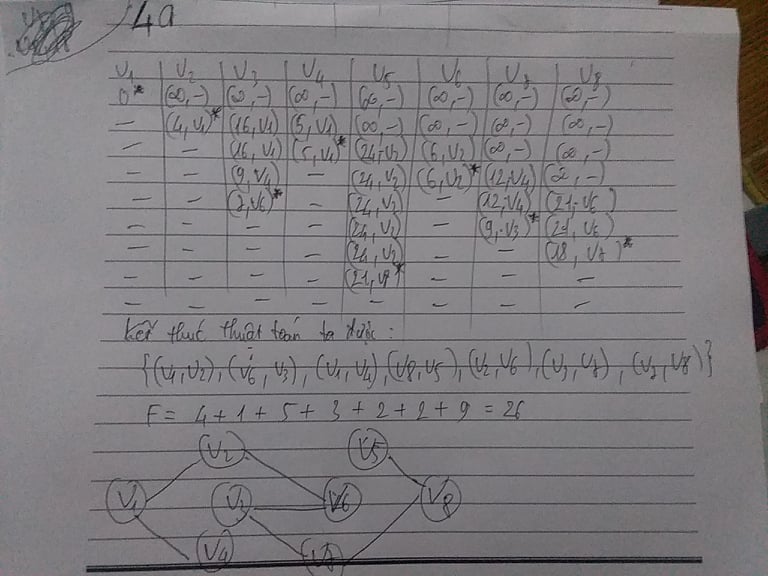 4a
V1 V2 V3 V4 V5 V6 V7 V8
0* (∞,-) (∞,-) (∞,-) (∞,-) (∞,-) (∞,-) (∞,-)
- (4,V1)* (16,V1) (5,V1) (∞,-) (∞,-) (∞,-) (∞,-)
- - (16,V1) (5,V1)* (24,V2) (6,V2) (∞,-) (∞,-)
- - (9,V4) - (24,V2) (6,V2)* (12,V4) (∞,-)
- - (7,V6)* - (24,V2) - (12,V4) (21,V6)
- - - - (24,V2) - (9,V3)* (21,V6)
- - - - (24,V2) - - (18,V7)*
- - - - (21,V8)* - - -
- - - - - - - -
Kết thúc thuật toán ta được:
{(V1,V2), (V6,V3), (V1,V4), (V8,V5), (V2,V6), (V3,V7), (V7,V8)}
F = 4 + 1 + 5 + 3 + 2 + 2 + 9 = 26
V2 V5
V1 V3 V6 V8
V4 V7